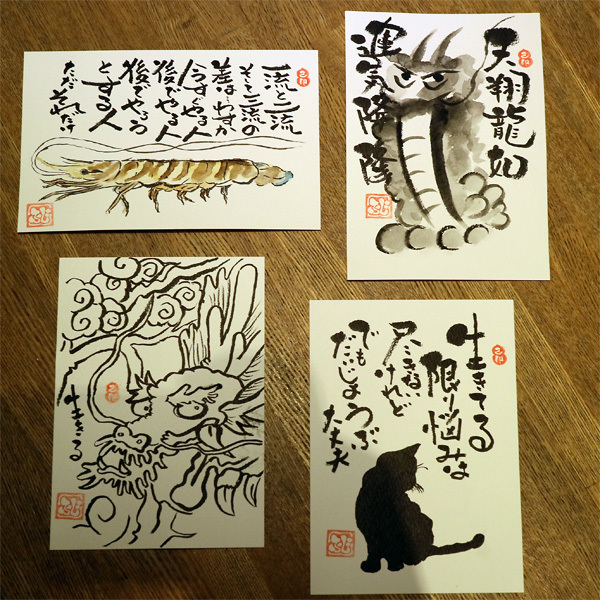 一流と二流
そして三流の
差は…わずか
今すぐやる人
後でやる人
後でやろう
とする人
ただそれだけ
天翔龍如
運気隆隆
生きてる
生きてる
限り悩みは
尽きないけれど
でも
だいじょうぶ
大丈夫